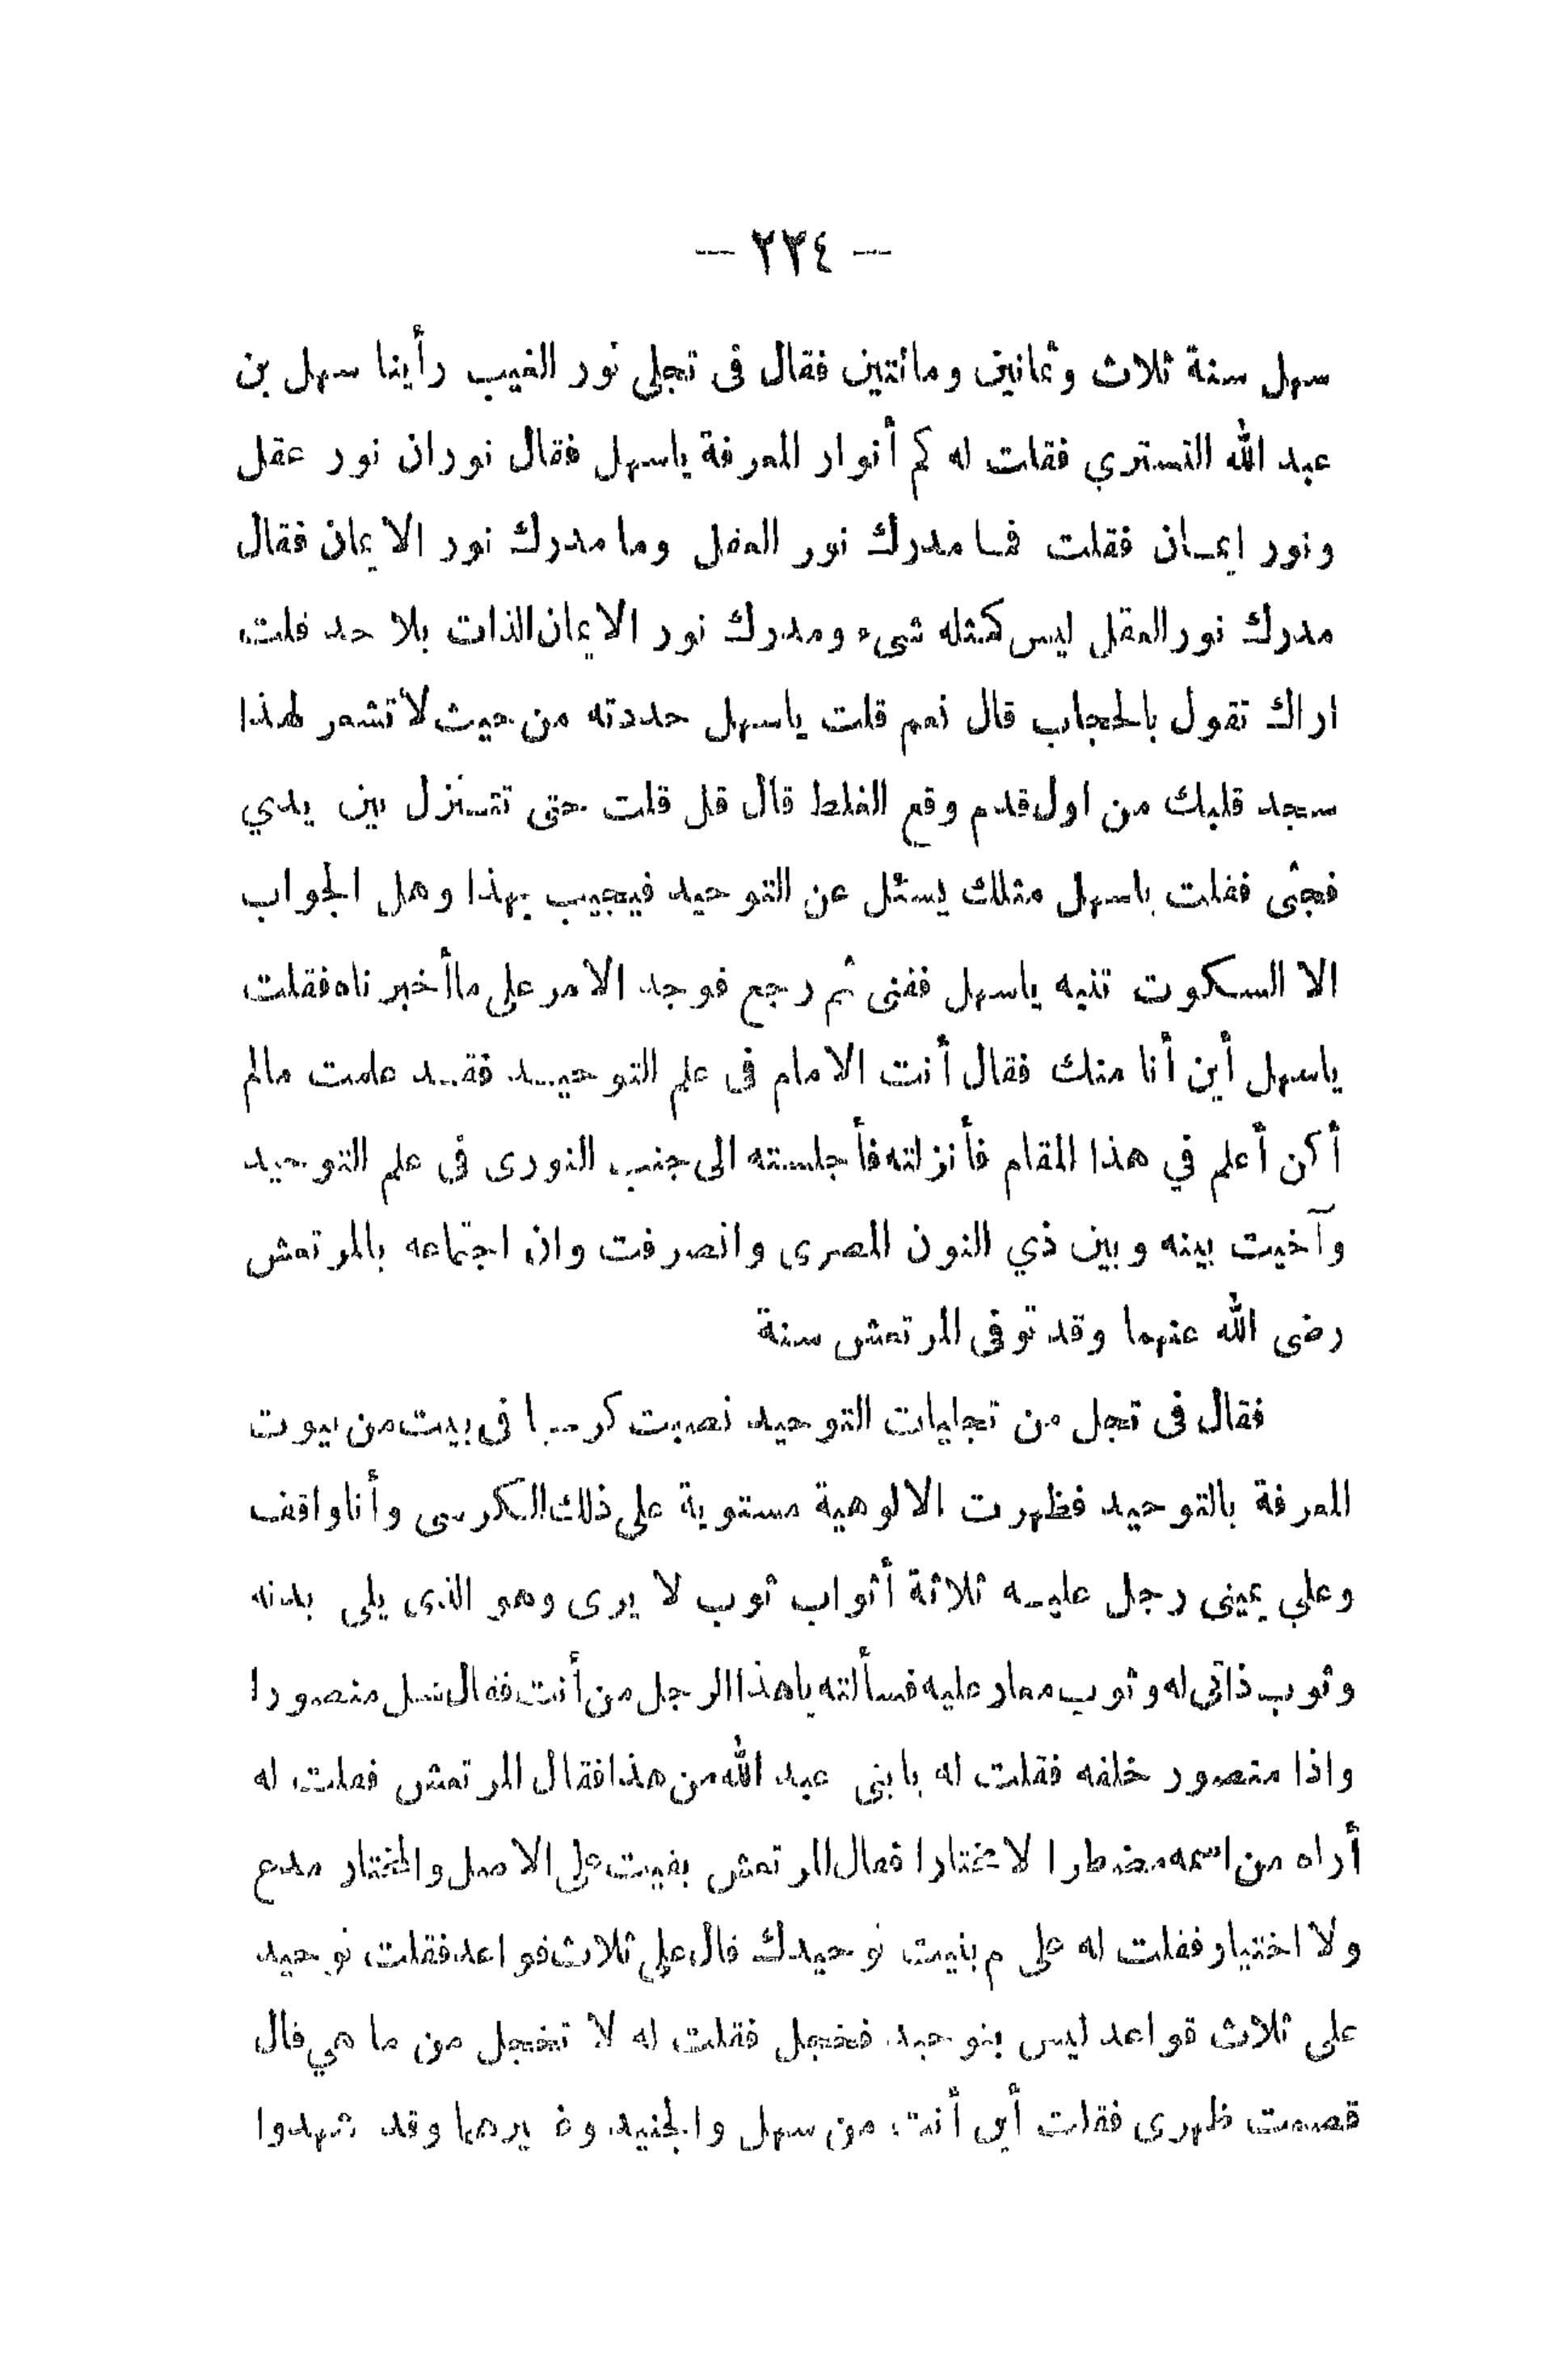 — ٢٣٤ —
سهل سنة ثلاث وثمانين ومائتين فقال فى تجلى نور الغيب رأينا سهل بن
عبد الله التستري فقلت له كم أنوار المعرفة ياسهل فقال نوران نور عقل
ونور ايمـان فقلت فمـا مدرك نور العقل وما مدرك نور الايمان فقال
مدرك نور العقل ليس كمثله شىء ومدرك نور الايمان الذات بلا حد قلت
اراك تقول بالحجاب قال نعم قلت ياسهل حددته من حيث لا تشعر لهذا
سجد قلبك من اول قدم وقع الغلط قال قل قلت حتى تتنزل بين يدي
فجثى فقلت ياسهل مثلك يسئل عن التوحيد فيجيب بهذا وهل الجواب
الا السكوت تنبه ياسهل ففنى ثم رجع فوجد الامر على ماأخبرناه فقلت
ياسهل أين أنا منك فقال أنت الامام فى علم التوحيـد فقـد علمت مالم
أكن أعلم في هذا المقام فأنزلته فأجلسته الى جنب النورى فى علم التوحيد
وآخيت بينه وبين ذي النون المصرى وانصرفت وان اجتماعه بالمرتعش
رضى الله عنهما وقد توفى المرتعش سنة
فقال فى تجل من تجليات التوحيد نصبت كرسيا فى بيت من بيوت
المعرفة بالتوحيد فظهرت الالوهية مستوية على ذلك الكرسى وأنا واقف
وعلي يمينى رجل عليـه ثلاثة أثواب ثوب لا يرى وهو الذى يلى بدنه
وثوب ذاتى له وثوب معار عليه فسألته ياهذا الرجل من أنت فقال سل منصورا
واذا منصور خلفه فقلت له يابنى عبد الله من هذا فقال المرتعش فقلت له
أراه من اسمه مضطرا لا مختارا فقال المرتعش بقيت على الاصل والمختار مدع
ولا اختيار فقلت له على م بنيت توحيدك قال على ثلاث قواعد فقلت توحيد
على ثلاث قواعد ليس بتوحيد فخجل فقلت له لا تخجل من ما هي قال
قصمت ظهرى فقلت أين أنت من سهل والجنيد وغيرهما وقد شهدوا